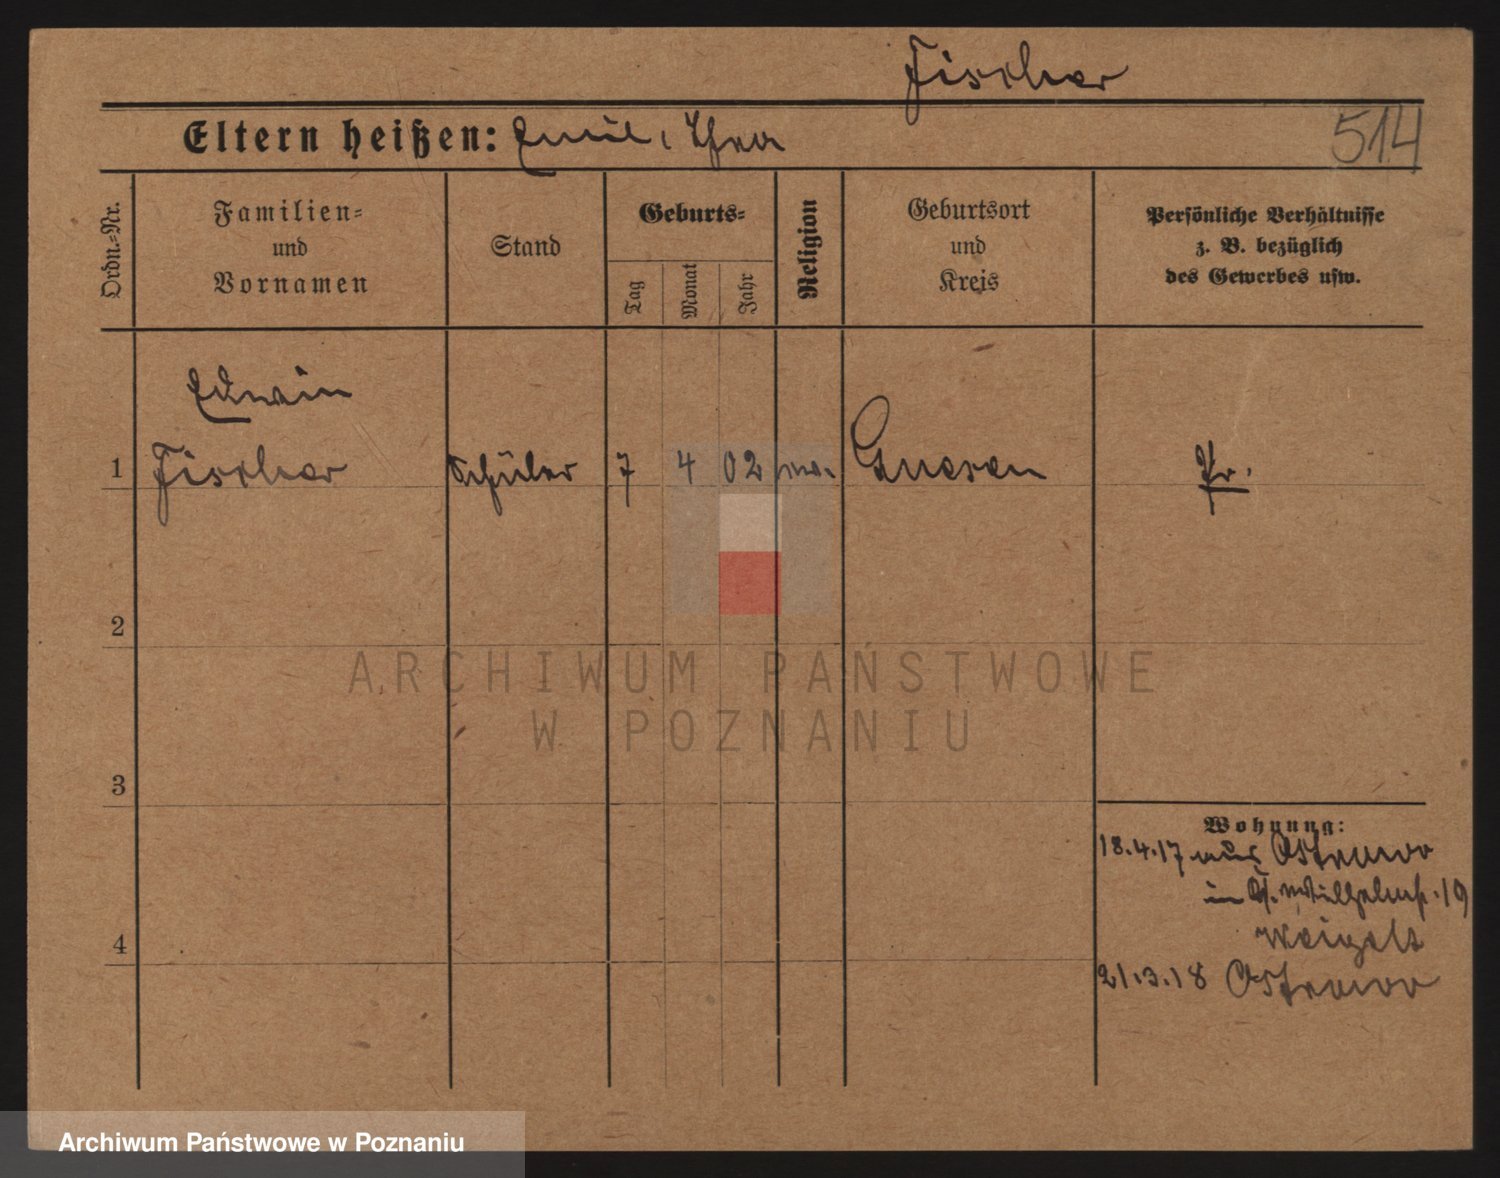 Fischer
Eltern heißen: Emil, Thea
514
Ordn.-Nr.
Familien-
und
Vornamen
Stand
Geburts-
Tag
Monat
Jahr
Religion
Geburtsort
und
Kreis
Persönliche Verhältnisse
z. B. bezüglich
des Gewerbes usw.
Edwin
1 Fischer Schüler 7 4 02 Gnesen Pr.
2
ARCHIWUM PAŃSTWOWE
W POZNANIU
3
Wohnung:
18.4.17 aus Ostrowo
in Wilhelmst. 19
Weigelt
4
21.3.18 Ostrowo
Archiwum Państwowe w Poznaniu